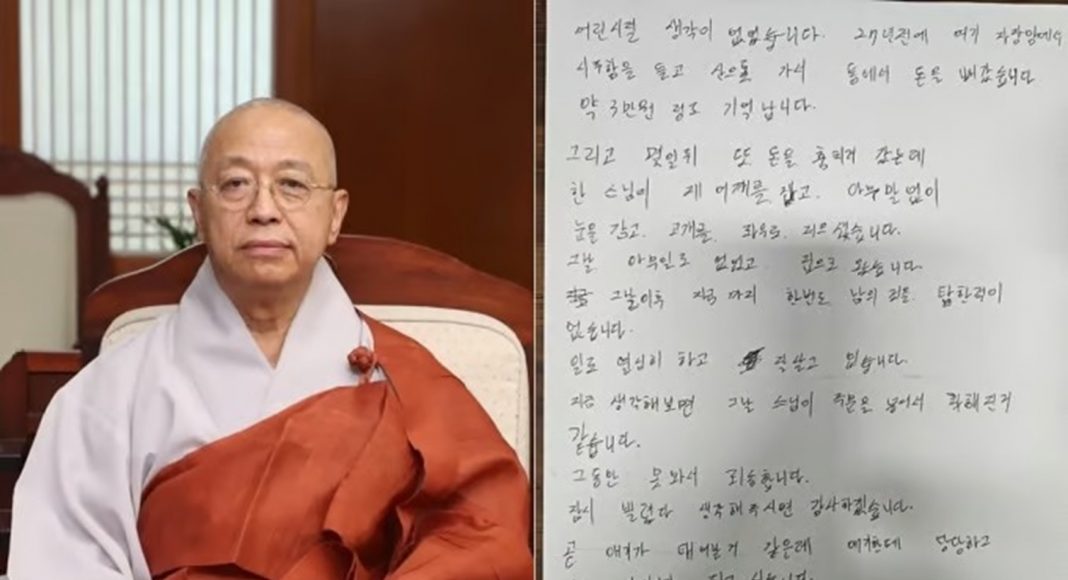 어린시절 생각이 없었습니다. 27년전에 여기 자장암에서
시주함을 들고 산으로 가서 통에서 돈을 빼갔습니다
약 3만원 정도 기억 납니다.
그리고 몇일뒤 또 돈을 훔치러 갔는데
한 스님이 제 어깨를 잡고. 아무말없이
눈을 감고. 고개를. 좌우로. 저으셨습니다.
그날 아무일도 없었고 집으로 왔습니다.
그날이후 지금까지 한번도 남의 것을. 탐한적이
없습니다.
일도 열심히 하고 잘 살고 있습니다.
지금 생각해보면 그날 스님이 주문을 넣어서 착해진거
같습니다.
그동안 못와서 죄송합니다.
잠시 빌렸다 생각해주시면 감사하겠습니다.
곧 애기가 태어날거 같은데 애기한테 당당하고